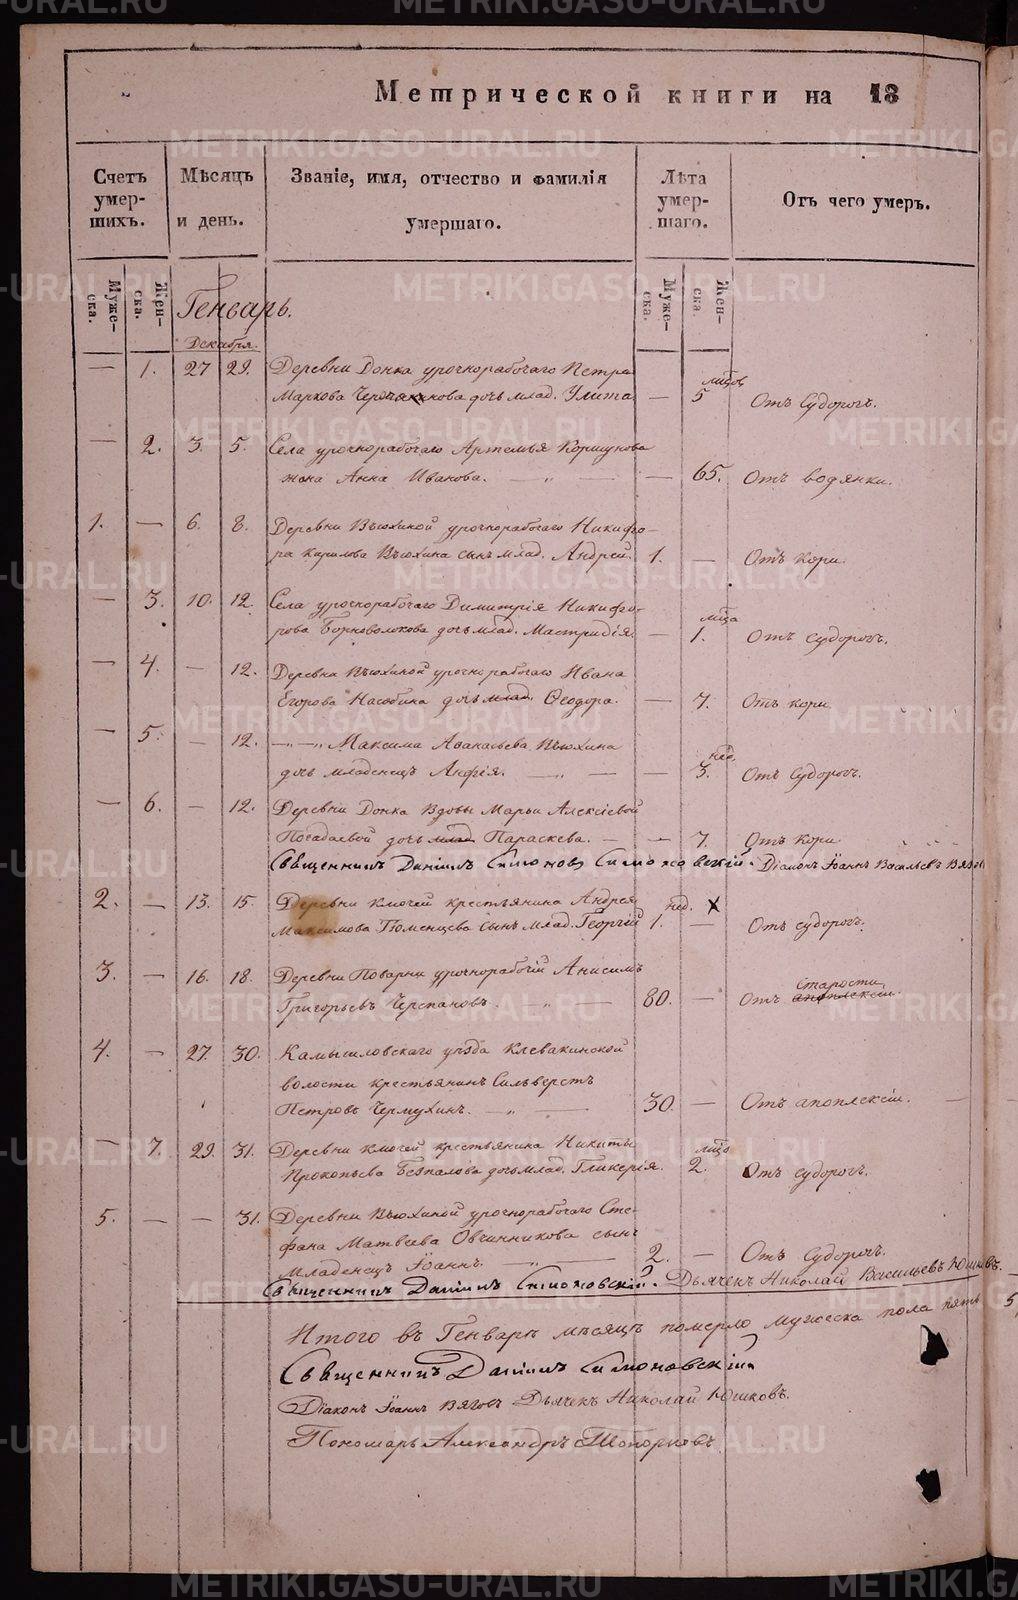 Метрической книги на 18
Счетъ умер-шихъ.
Мѣсяцъ и день.
Званіе, имя, отчество и фамилія умершаго.
Лѣта умер-шаго.
Отъ чего умеръ.
Муже-ска.
Жен-ска.
Муже-ска.
Жен-ска.
Генварь.
Декабря.
— 1. 27 29. Деревни Донка урочнорабочаго Петра
Маркова дочь млад. Улита — 5 Отъ Судорогъ.
— 2. 3. 5. Села урочнорабочаго Артемья Коршунова
жена Анна Иванова. — „ — — 65. Отъ водянки.
1. — 6. 8. Деревни Вьюхиной урочнорабочаго Никифо-
ра Карилова Вьюхина сынъ млад. Андрей. 1. — Отъ кори.
— 3. 10. 12. Села урочнорабочаго Димитрія Никифо-
рова Борноволокова дочь млад. Мастридія. — 1. Отъ судорогъ.
— 4. — 12. Деревни Вьюхиной урочнорабочаго Ивана
Егорова дочь млад. Ѳеодора. — 7. Отъ кори
— 5. — 12. —„—„ Максима Аѳанасьева Вьюхина нед.
дочь младенецъ Анфія. — „ — — 3. Отъ Судорогъ.
— 6. — 12. Деревни Донка Вдовы Марьи Алексіевой
дочь млад Параскева. — — 7. Отъ Кори
Священникъ Даніилъ Симоновскій. Діаконъ Іоаннъ Васильевъ
2. — 13. 15. Деревни Ключей крестьянина Андрея нед. X
Максимова Тюменцева Сынъ млад. Георгій 1. — Отъ судорогъ.
3. — 16. 18. Деревни Поварни урочнорабочій Анисимъ старости
Григорьевъ Черепановъ. — „ — 80. — Отъ апоплексіи.
4. — 27. 30. Камышловскаго уѣзда Клевакинской
волости крестьянинъ Сильверстъ
Петровъ Чермухинъ. — „ — 30. — Отъ апоплексіи.
— 7. 29. 31. Деревни Ключей крестьянина Никиты
Прокопьева Безпалова дочь млад. Гликерія. 2. Отъ судорогъ.
5. — — 31. Деревни Вьюхиной урочнорабочаго Сте-
фана Матвѣева Овчинникова сынъ
младенецъ Іоаннъ. — „ — 2. — Отъ Судорогъ.
Священникъ Даніилъ Симоновскій. Дьячекъ Николай Васильевъ Юшковъ.
Итого въ Генварѣ мѣсяцѣ померло мужеска пола пять 5,
Священникъ Даніилъ Симоновскій
Діаконъ Іоаннъ Дьячекъ Николай Юшковъ.
Пономарь Александръ Топорковъ
METRIKI.GASO-URAL.RU